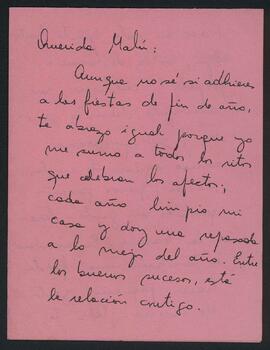 Querida Malú:
Aunque no sé si adhieres
a las fiestas de fin de año,
te abrazo igual porque yo
me sumo a todos los ritos
que celebran los afectos;
cada año limpio mi
casa y doy una repasada
a lo mejor del año. Entre
los buenos sucesos, está
la relación contigo.